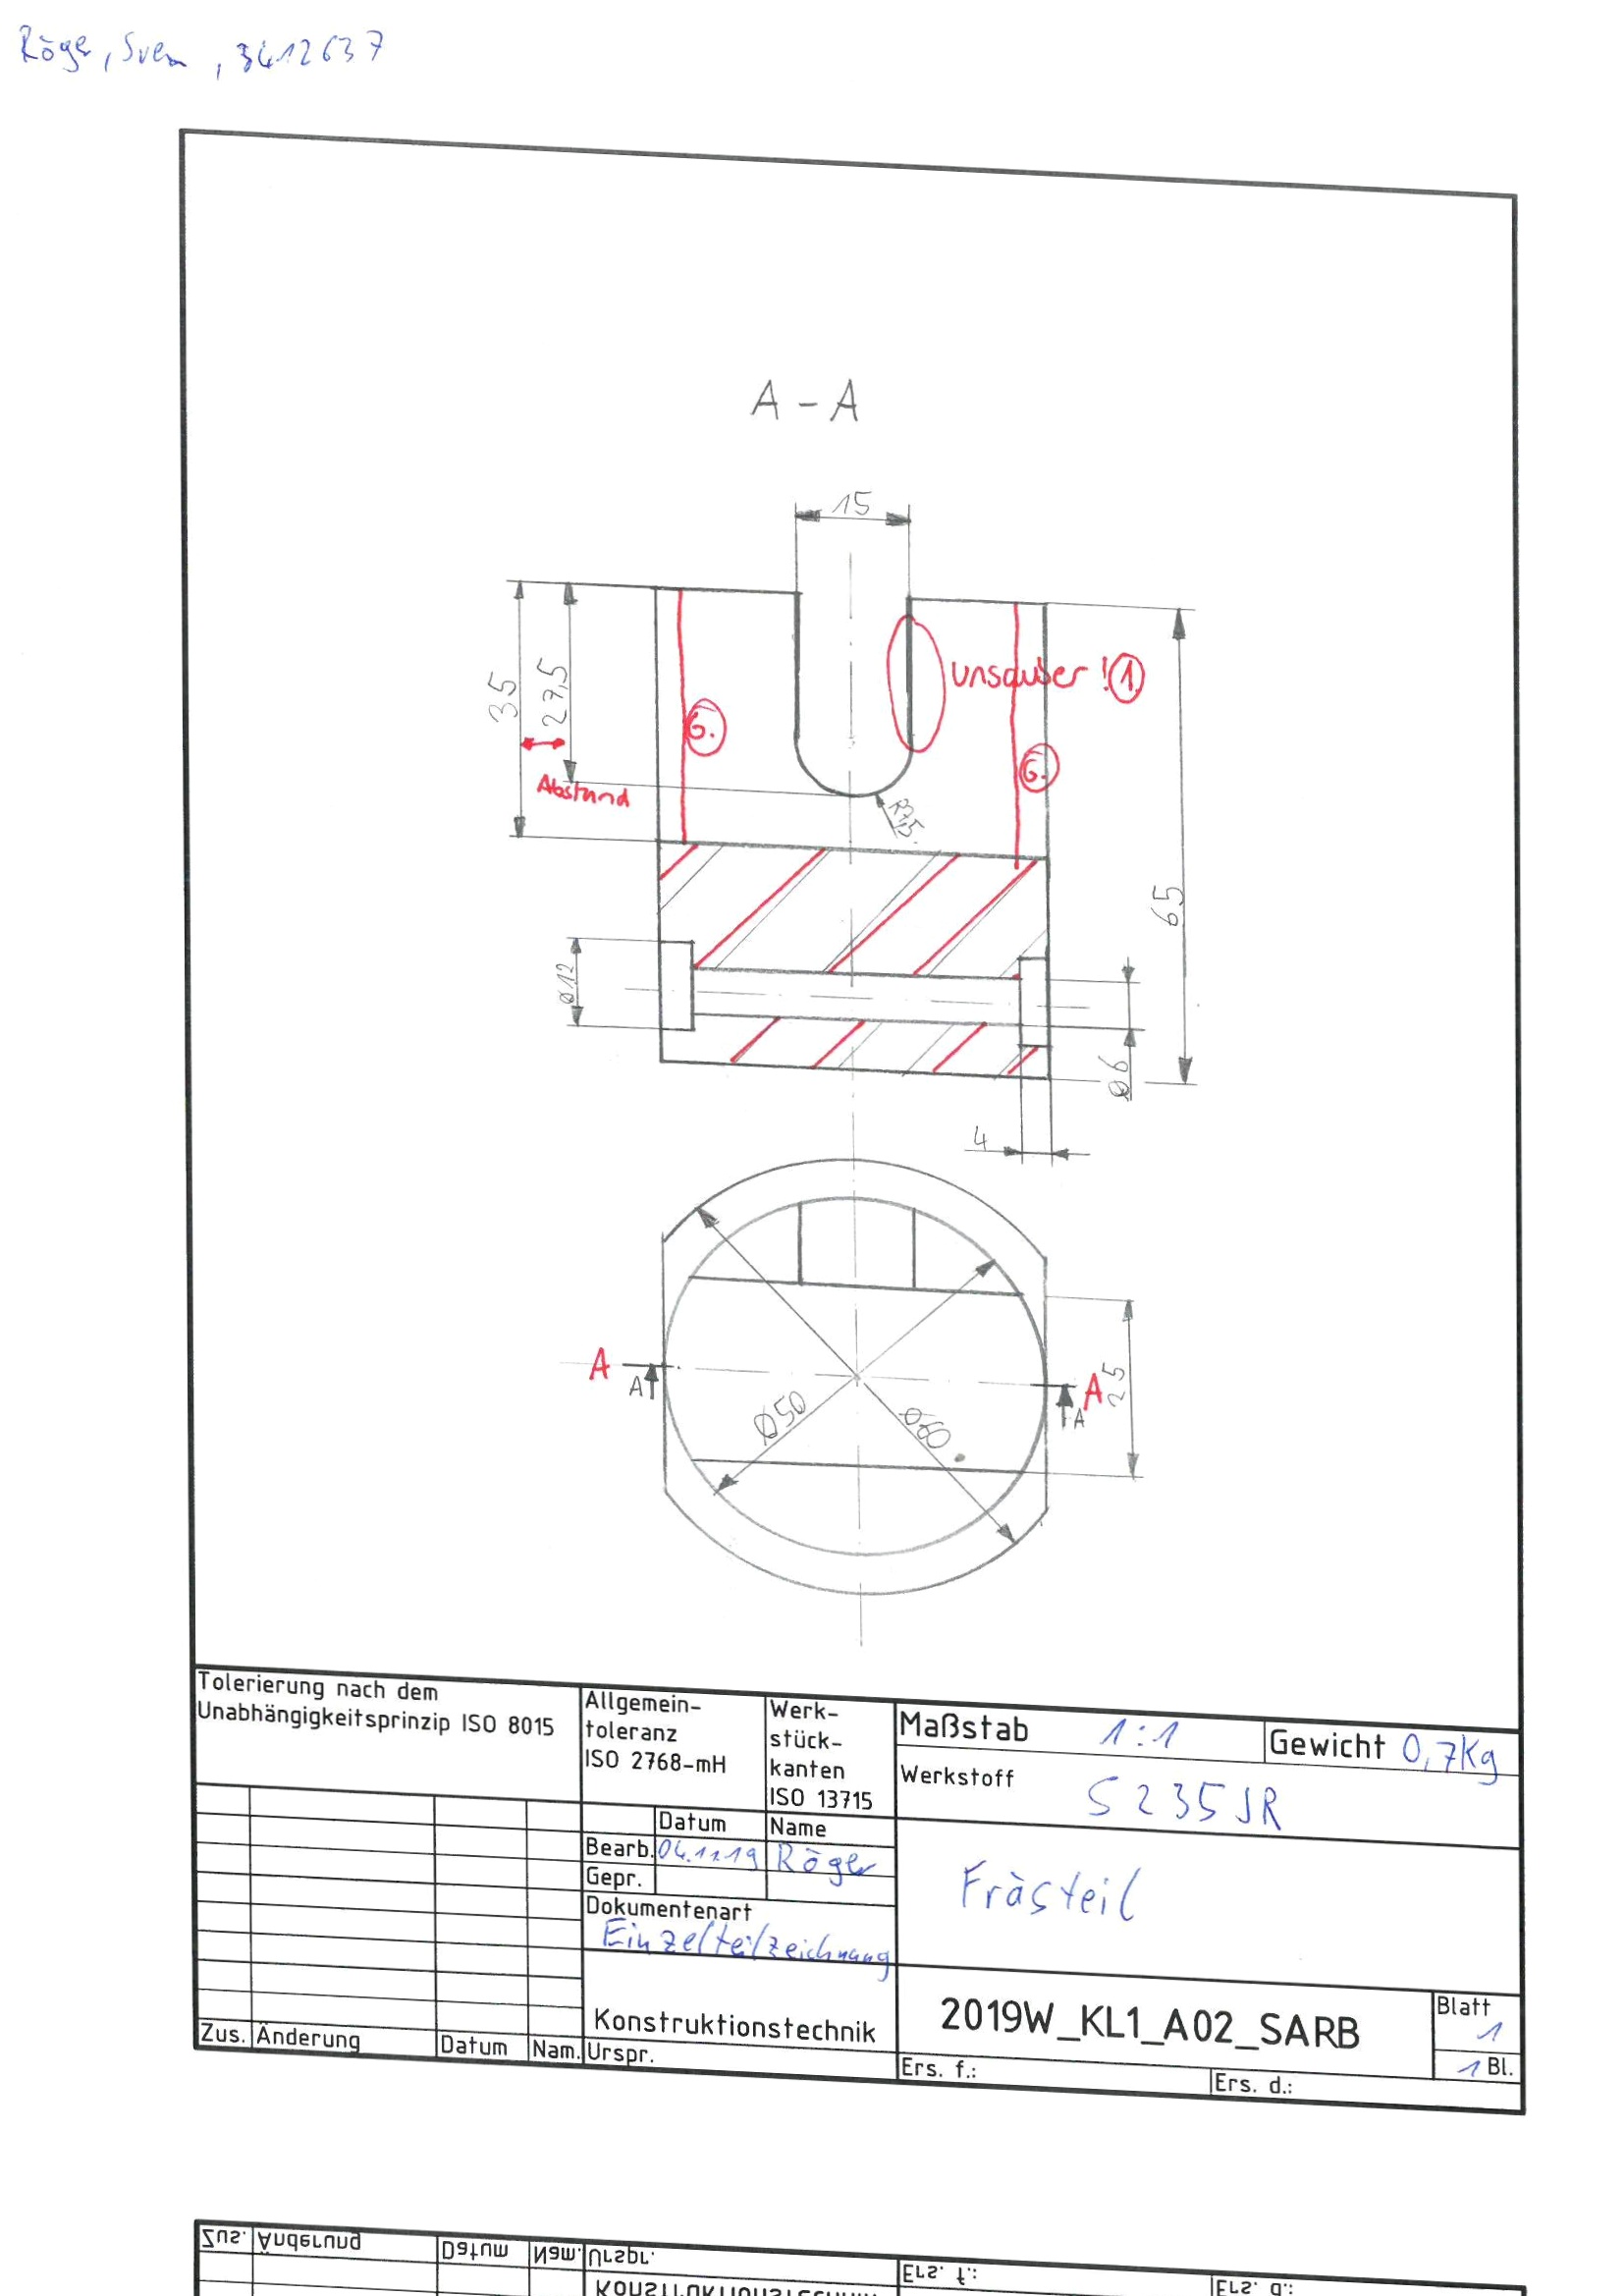 Röger, Sven, 3412637
A - A
15
35
27,5
Unsauber! 1.
6.
6.
Abstand
R7,5
65
ø12
ø6
4
A
A
A
A
25
Ø50
ø60
Tolerierung nach dem
Unabhängigkeitsprinzip ISO 8015
Allgemein-
toleranz
ISO 2768-mH
Werk-
stück-
kanten
ISO 13715
Maßstab 1:1
Gewicht 0,7Kg
Werkstoff
S235JR
Datum Name
Bearb. 04.11.19 Röger
Gepr.
Dokumentenart
Einzelteilzeichnung
Frästeil
Konstruktionstechnik
2019W_KL1_A02_SARB
Blatt
1
1 Bl.
Zus. Änderung Datum Nam. Urspr.
Ers. f.: Ers. d.:
Zus. Änderung Datum Nam. Urspr.
Ers. f.: Ers. d.:
Konstruktionstechnik